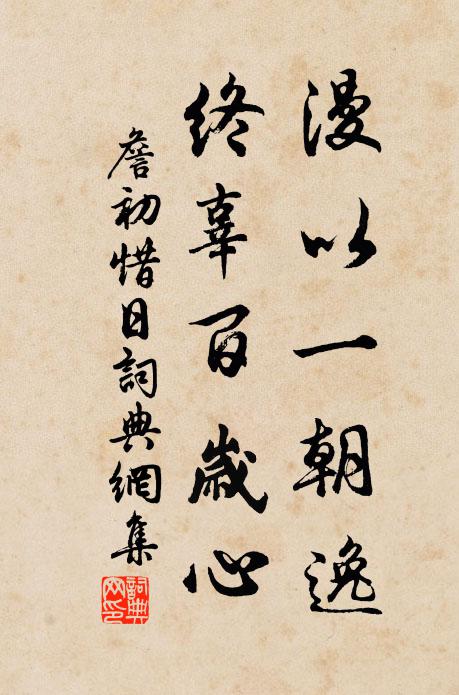 漫以一朝逸
終辜百歲心
詹初惜日詞典網集
詞典網印